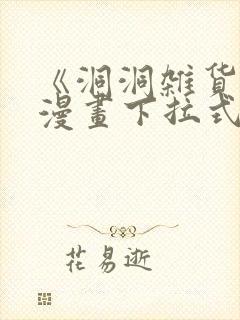 《洞洞雑货
漫畫下拉式
花易逝